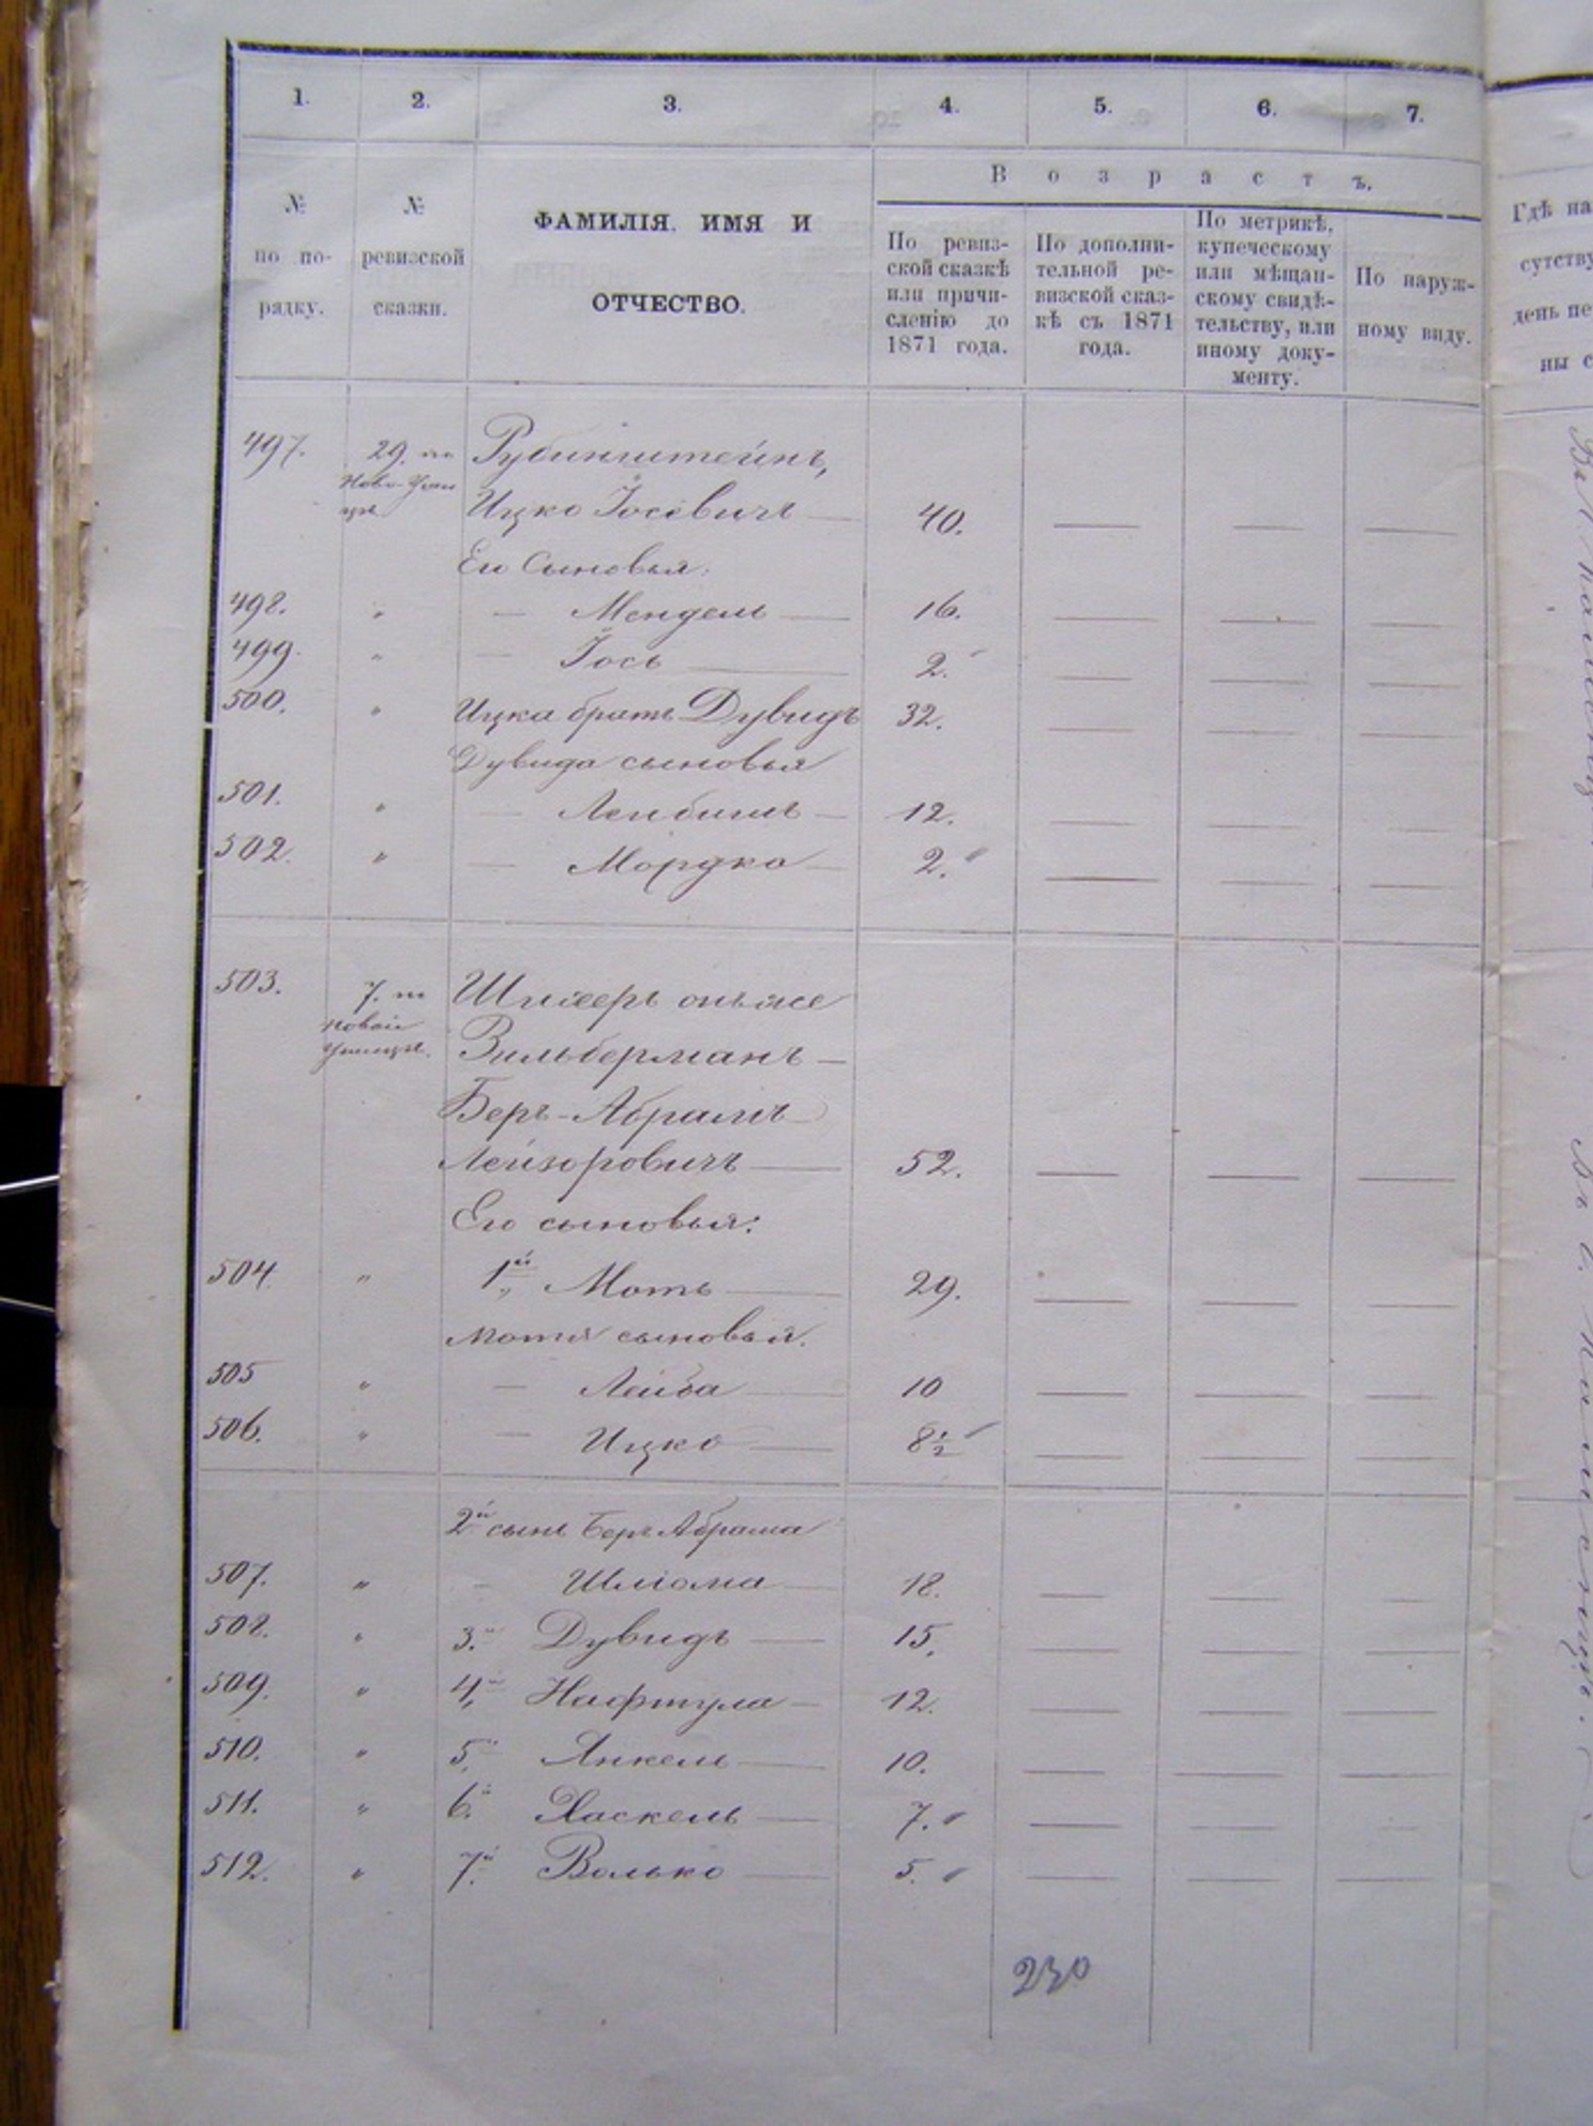 1. 2. 3. 4. 5. 6. 7.
№ по по-рядку.
№ ревизской сказки.
ФАМИЛІЯ, ИМЯ И
ОТЧЕСТВО.
В о з р а с т ъ.
По ревиз-
ской сказкѣ
или причи-
сленію до
1871 года.
По дополни-
тельной ре-
визской сказ-
кѣ съ 1871
года.
По метрикѣ,
купеческому
или мѣщан-
скому свидѣ-
тельству, или
иному доку-
менту.
По наруж-
ному виду.
Гдѣ на
сутству
день пе
ны с
497. 29. по Рубинштейнъ,
Ново-Уши
цѣ Ицко Іосевичъ — 40. — — —
Его Сыновья:
498. " — Мендель — 16. — — —
499. " — Іось — 2. — — —
500. " Ицка братъ Дувидъ 32. — — —
Дувида сыновья
501. " — Лейбишъ — 12. — — —
502. " — Мордко — 2. — — —
503. 7. по онъ же
Новой
Ушицѣ. Зильберманъ —
Беръ-Абрамъ
Лейзоровичъ — 52. — — —
Его сыновья:
504. " 1й Моть — 29. — — —
Мотя сыновья.
505 " — Лейба — 10 — — —
506. " — Ицко — 8½ — — —
2й сынъ Беръ Абрама
507. " — Шлiома — 18. — — —
508. " 3.й Дувидъ — 15. — — —
509. " 4.й Нафтула — 12. — — —
510. " 5.й Янкель — 10. — — —
511. " 6.й Хаскель — 7. — — —
512. " 7.й Волько — 5. — — —
230